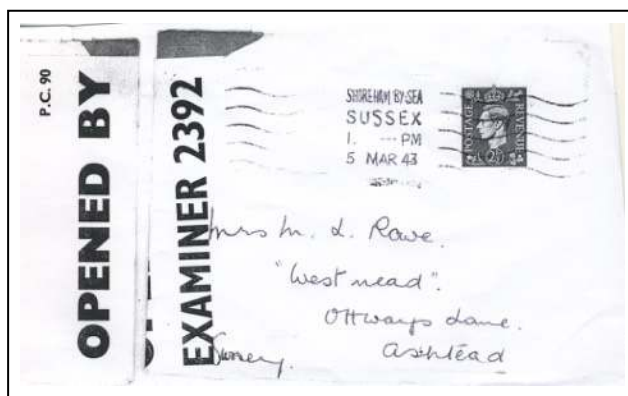 P.C. 90
OPENED BY
EXAMINER 2392
SHOREHAM BY SEA
SUSSEX
1. --- PM
5 MAR 43
POSTAGE
REVENUE
Mrs M. L. Rowe.
"Westmead".
Ottways Lane.
Ashtead
Surrey.